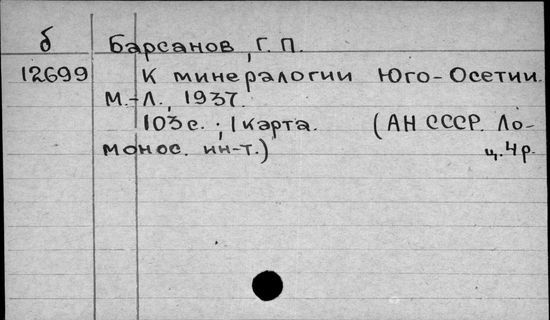 б Барсанов, Г. П.
12699 К минералогии Юго-Осетии.
М.-Л., 1937.
103 с.; 1 карта. (АН СССР. Ло-
монос. ин-т.) ц. 4 р.